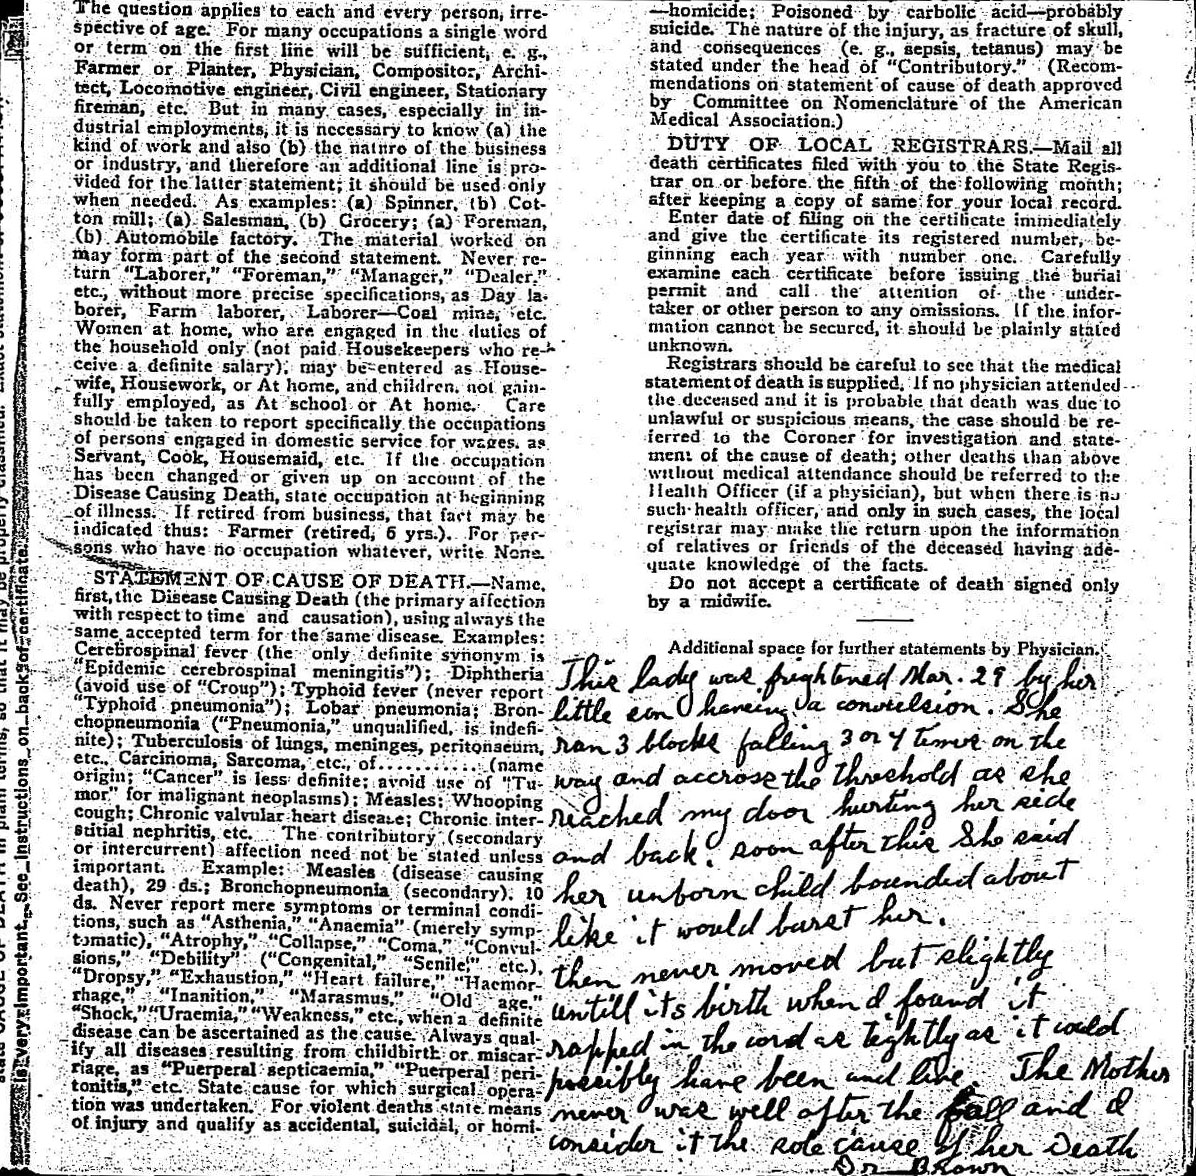 The question applies to each and every person, irre-
spective of age. For many occupations a single word
or term on the first line will be sufficient, e. g.,
Farmer or Planter, Physician, Compositor, Archi-
tect, Locomotive engineer, Civil engineer, Stationary
fireman, etc. But in many cases, especially in in-
dustrial employments, it is necessary to know (a) the
kind of work and also (b) the nature of the business
or industry, and therefore an additional line is pro-
vided for the latter statement; it should be used only
when needed. As examples: (a) Spinner, (b) Cot-
ton mill; (a) Salesman, (b) Grocery; (a) Foreman,
(b) Automobile factory. The material worked on
may form part of the second statement. Never re-
turn "Laborer," "Foreman," "Manager," "Dealer,"
etc., without more precise specifications, as Day la-
borer, Farm laborer, Laborer—Coal mine, etc.
Women at home, who are engaged in the duties of
the household only (not paid Housekeepers who re-
ceive a definite salary), may be entered as House-
wife, Housework, or At home, and children, not gain-
fully employed, as At school or At home. Care
should be taken to report specifically the occupations
of persons engaged in domestic service for wages, as
Servant, Cook, Housemaid, etc. If the occupation
has been changed or given up on account of the
Disease Causing Death, state occupation at beginning
of illness. If retired from business, that fact may be
indicated thus: Farmer (retired, 6 yrs.). For per-
sons who have no occupation whatever, write None.
STATEMENT OF CAUSE OF DEATH.—Name,
first, the Disease Causing Death (the primary affection
with respect to time and causation), using always the
same accepted term for the same disease. Examples:
Cerebrospinal fever (the only definite synonym is
"Epidemic cerebrospinal meningitis"); Diphtheria
(avoid use of "Croup"); Typhoid fever (never report
"Typhoid pneumonia"); Lobar pneumonia; Bron-
chopneumonia ("Pneumonia," unqualified, is indefi-
nite); Tuberculosis of lungs, meninges, peritonaeum,
etc., Carcinoma, Sarcoma, etc., of........... (name
origin; "Cancer" is less definite; avoid use of "Tu-
mor" for malignant neoplasms); Measles; Whooping
cough; Chronic valvular heart disease; Chronic inter-
stitial nephritis, etc. The contributory (secondary
or intercurrent) affection need not be stated unless
important. Example: Measles (disease causing
death), 29 ds.; Bronchopneumonia (secondary), 10
ds. Never report mere symptoms or terminal condi-
tions, such as "Asthenia," "Anaemia" (merely symp-
tomatic), "Atrophy," "Collapse," "Coma," "Convul-
sions," "Debility" ("Congenital," "Senile," etc.),
"Dropsy," "Exhaustion," "Heart failure," "Haemor-
rhage," "Inanition," "Marasmus," "Old age,"
"Shock," "Uraemia," "Weakness," etc., when a definite
disease can be ascertained as the cause. Always qual-
ify all diseases resulting from childbirth or miscar-
riage, as "Puerperal septicaemia," "Puerperal peri-
tonitis," etc. State cause for which surgical opera-
tion was undertaken. For violent deaths state means
of injury and qualify as accidental, suicidal, or homi-
—homicide; Poisoned by carbolic acid—probably
suicide. The nature of the injury, as fracture of skull,
and consequences (e. g., sepsis, tetanus) may be
stated under the head of "Contributory." (Recom-
mendations on statement of cause of death approved
by Committee on Nomenclature of the American
Medical Association.)
DUTY OF LOCAL REGISTRARS.—Mail all
death certificates filed with you to the State Regis-
trar on or before the fifth of the following month;
after keeping a copy of same for your local record.
Enter date of filing on the certificate immediately
and give the certificate its registered number, be-
ginning each year with number one. Carefully
examine each certificate before issuing the burial
permit and call the attention of the under-
taker or other person to any omissions. If the infor-
mation cannot be secured, it should be plainly stated
unknown.
Registrars should be careful to see that the medical
statement of death is supplied. If no physician attended
the deceased and it is probable that death was due to
unlawful or suspicious means, the case should be re-
ferred to the Coroner for investigation and state-
ment of the cause of death; other deaths than above
without medical attendance should be referred to the
Health Officer (if a physician), but when there is no
such health officer, and only in such cases, the local
registrar may make the return upon the information
of relatives or friends of the deceased having ade-
quate knowledge of the facts.
Do not accept a certificate of death signed only
by a midwife.
Additional space for further statements by Physician.
This lady was frightened Mar. 29 by her
little son having a convulsion. She
ran 3 blocks falling 3 or 4 times on the
way and accross the threshold as she
reached my door hurting her side
and back. soon after this She said
her unborn child bounded about
like it would burst her.
then never moved but slightly
untill its birth when I found it
rapped in the cord as tightly as it could
possibly have been and live. The Mother
never was well after the fall and I
consider it the sole cause of her Death
Dr Brown
is very important. See instructions on back of certificate.